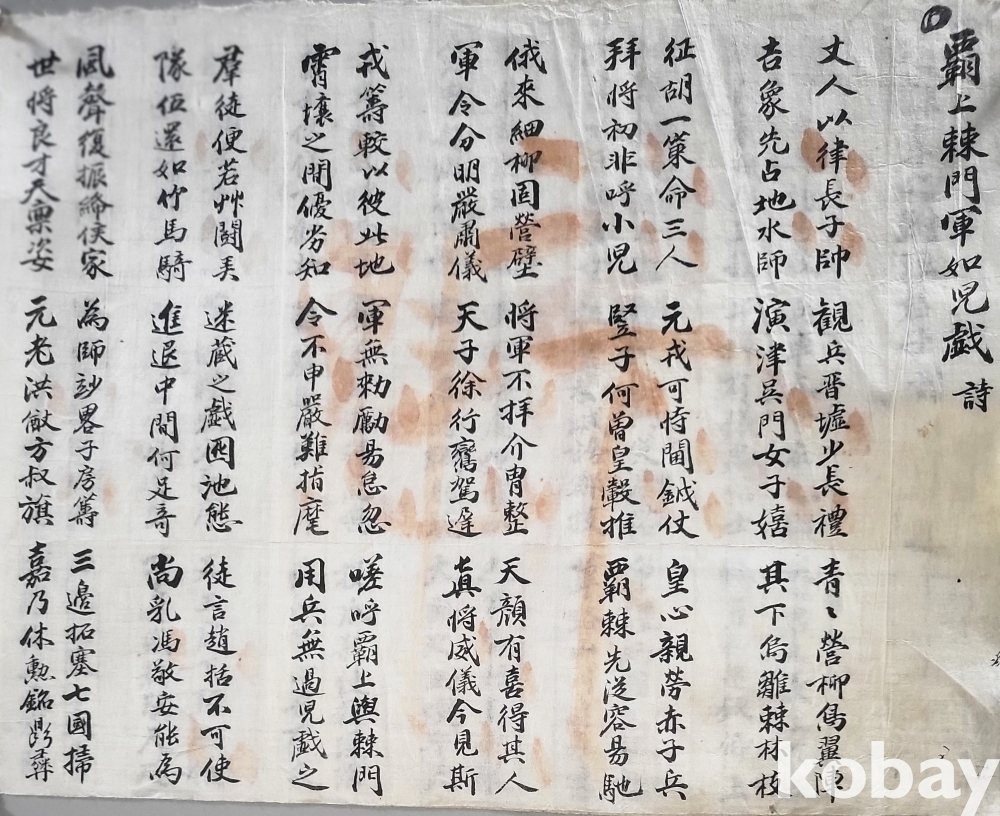 覇上棘門軍如兒戱 詩
丈人以律長子帥
吉象先占地水師
觀兵晋墟少長禮
演津吳門女子嬉
青〻營柳鳥翼陣
其下烏騅棘林枝
征胡一策命三人
拜將初非呼小兒
元戎可恃閫鉞仗
竪子何曾皇轂推
皇心親勞赤子兵
覇棘先從容易馳
俄來細柳固營壁
軍令分明嚴肅儀
將軍不拜介冑整
天子徐行鸞駕遅
天顔有喜得其人
眞將威儀今見斯
戎籌較以彼此地
霄壤之間優劣知
軍無勅勵易怠忽
令不申嚴難指麾
嗟呼覇上與棘門
用兵無過兒戱之
羣徒便若艸鬪美
隊伍還如竹馬騎
迷藏之戱池態
進退中間何足奇
徒言趙括不可使
尚乳馮敬安能為
風聲復振絳侯家
世將良才天稟姿
為師畧子房籌
元老洪猷方叔旗
三邊拓塞七國掃
嘉乃休勳銘鼎彝
kobay